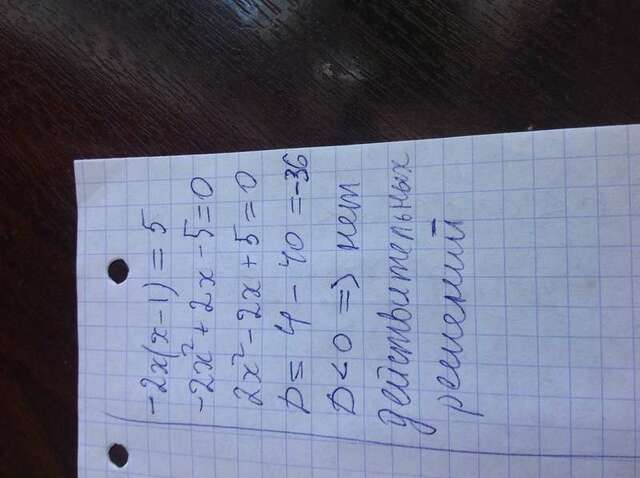 -2x(x-1) = 5
-2x² + 2x - 5 = 0
2x² - 2x + 5 = 0
D = 4 - 40 = -36
D < 0 => нет
действительных
решений